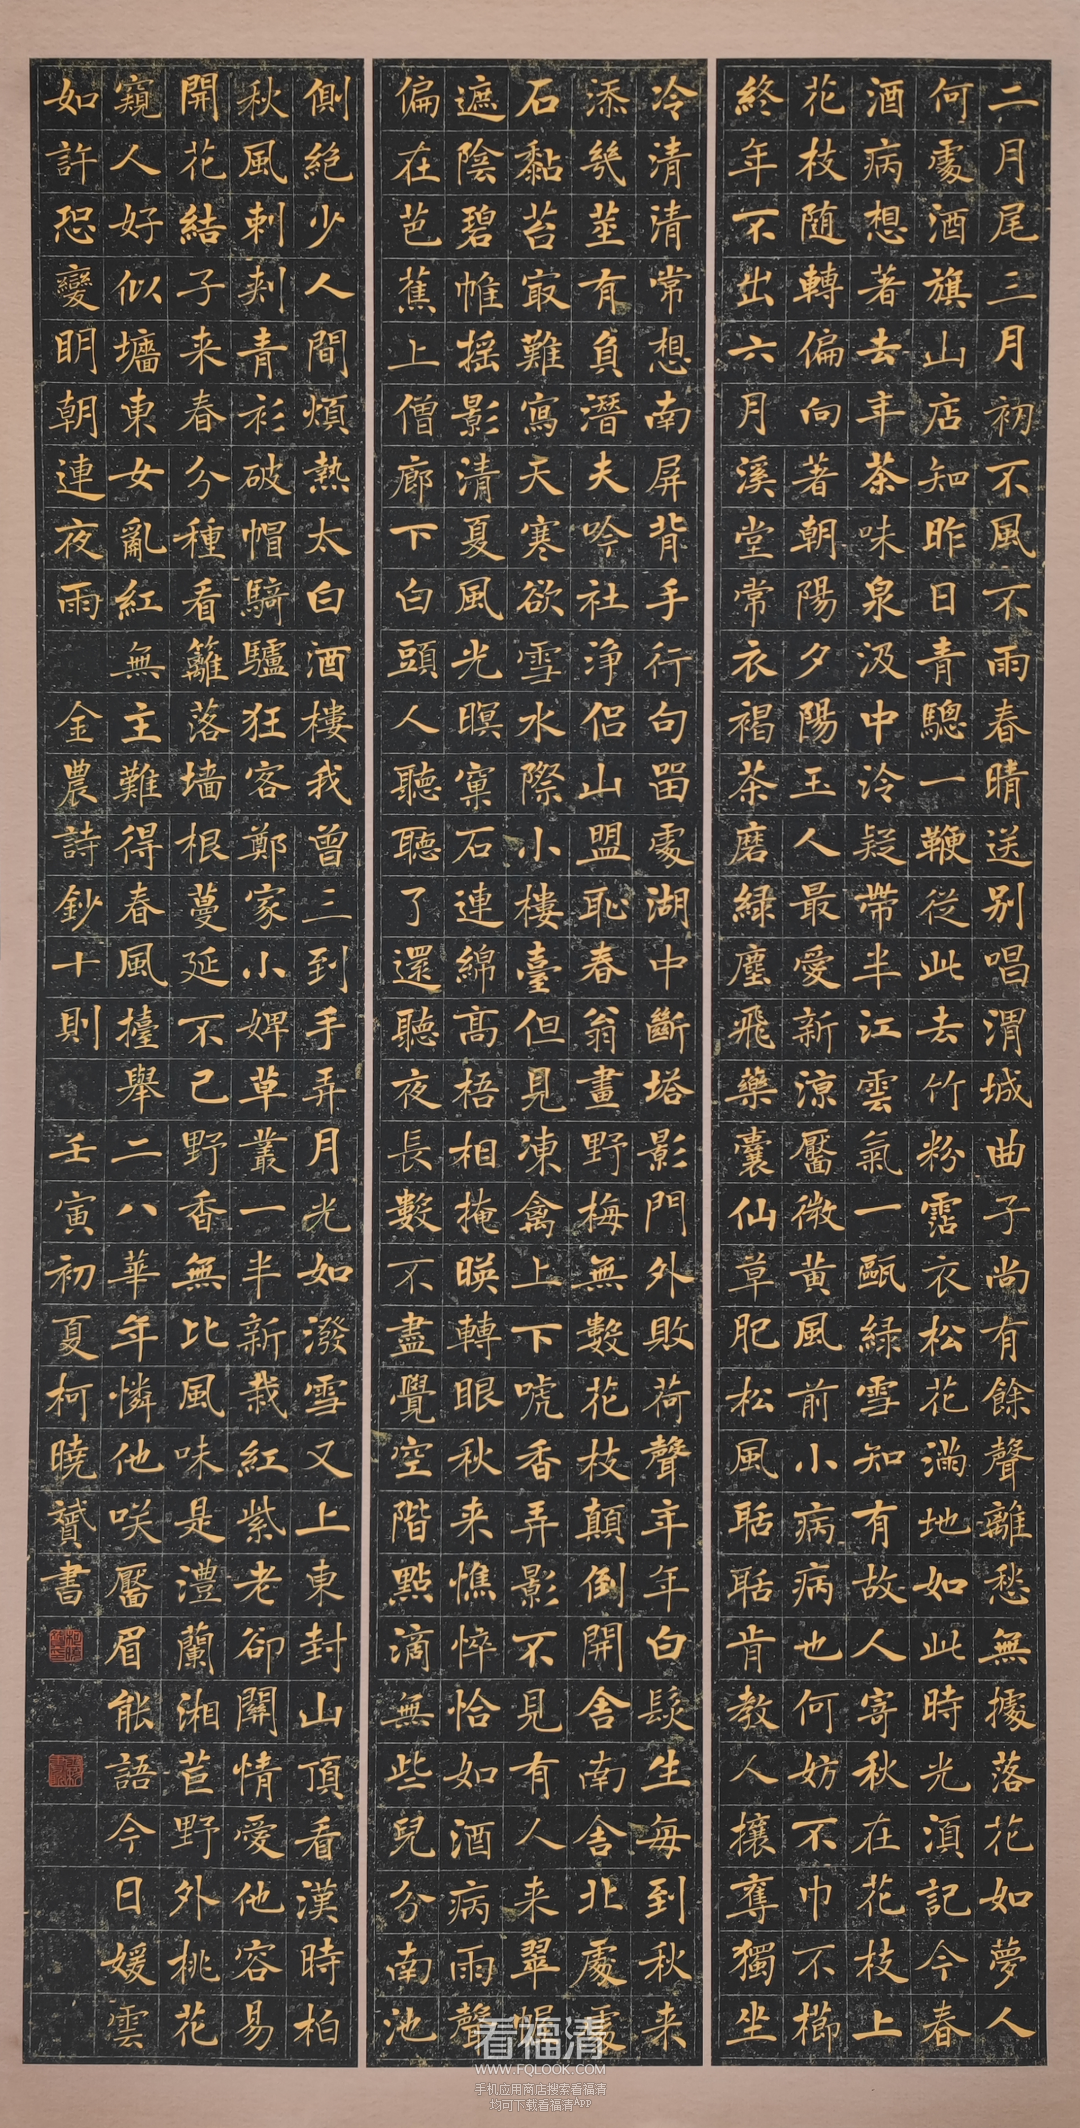 二月尾三月初不風不雨春晴送别唱渭城曲子尚有餘聲離愁無據落花如夢人
何處酒旗山店知昨日青驄一鞭從此去竹粉霑衣松花滿地如此時光湏記今春
酒病想著去年茶味泉汲中泠疑帶半江雲氣一甌緑雪知有故人寄秋在花枝上
花枝随轉偏向著朝陽夕陽王人最愛新涼靨微黄風前小病病也何妨不巾不櫛
終年不出六月溪堂常衣褐茶磨緑塵飛藥囊仙草肥松風聒聒肯教人攘奪獨坐
冷清清常想南屏背手行句留處湖中斷塔影門外敗荷聲年年白髮生每到秋来
添幾莖有負潛夫吟社浄侣山盟恥春翁畫野梅無數花枝顛倒開舍南舍北處處
石黏苔㝡難寫天寒欲雪水際小樓臺但見凍禽上下唬香弄影不見有人来翠幄
遮陰碧帷摇影清夏風光暝窠石連綿高梧相掩暎轉眼秋来憔悴恰如酒病雨聲
偏在芭蕉上僧廊下白頭人聽聽了還聽夜長數不盡覺空階點滴無些兒分南池
側絕少人間煩熱太白酒樓我曾三到手弄月光如潑雪又上東封山頂看漢時柏
秋風刺刺青衫破帽騎驢狂客鄭家小婢草叢一半新栽紅紫老卻關情愛他容易
開花結子来春分種看籬落墻根蔓延不已野香無比風味是澧蘭湘茝野外桃花
窺人好似墻東女亂紅無主難得春風擡舉二八華年憐他咲靨眉能語今日媛雲
如許恐變明朝連夜雨 金農詩鈔十則 壬寅初夏柯曉贇書
看福清
WWW.FQLOOK.COM
手机应用商店搜索看福清
均可下载看福清APP